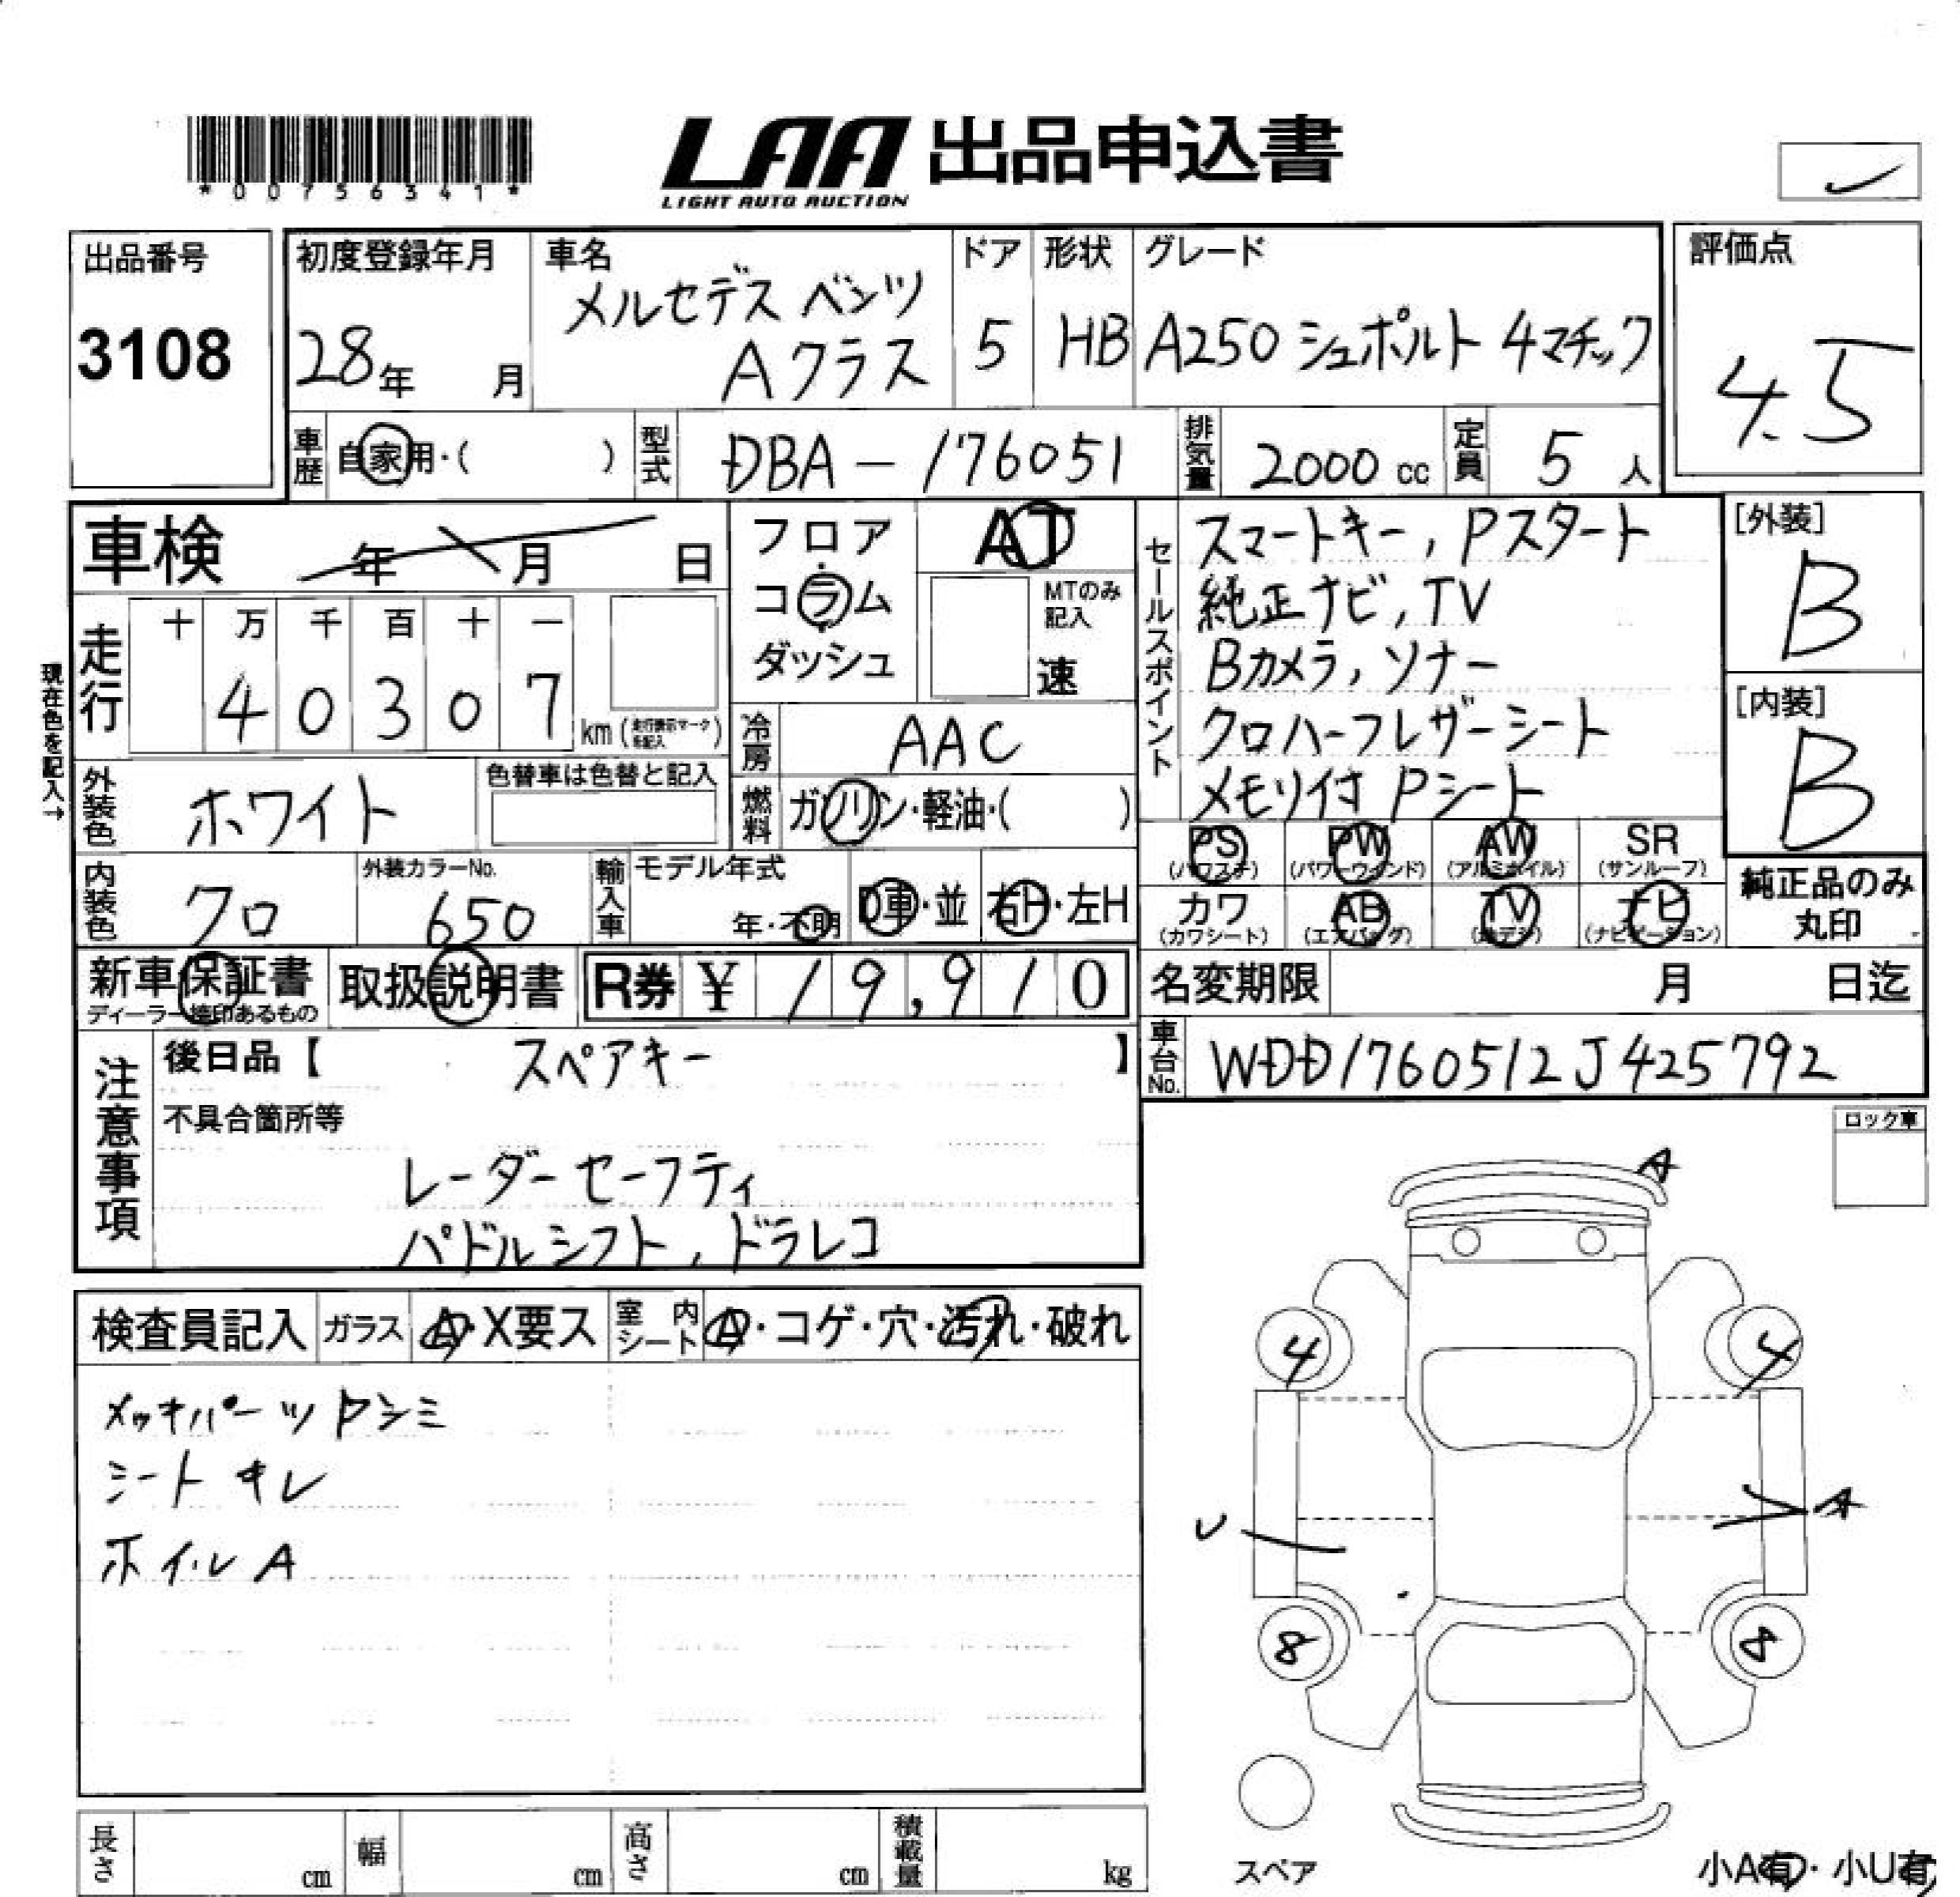 *00756341*
LAA 出品申込書
LIGHT AUTO AUCTION
出品番号
3108
初度登録年月
28年 月
車名
メルセデス ベンツ
Aクラス
ドア
5
形状
HB
グレード
A250 シュポルト 4マチック
評価点
4.5
車歴 自家用・( )
型式 DBA-176051
排気量 2000 cc
定員 5 人
車検 年 月 日
フロア
・
コラム
・
ダッシュ
AT
MTのみ
記入
速
現在色を記入→
走行
十 万 千 百 十 一
4 0 3 0 7 km (走行表示マークを記入)
冷房 AAC
外装色 ホワイト
色替車は色替と記入
燃料 ガソリン・軽油・( )
セールスポイント
スマートキー, Pスタート
純正ナビ, TV
Bカメラ, ソナー
クロハーフレザーシート
メモリ付 Pシート
[外装]
B
[内装]
B
内装色 クロ
外装カラーNo.
650
輸入車
モデル年式
年・不明
D車・並
右H・左H
PS
(パワステ)
PW
(パワーウインド)
AW
(アルミホイル)
SR
(サンルーフ)
カワ
(カワシート)
AB
(エアバッグ)
TV
(テレビ)
ナビ
(ナビゲーション)
純正品のみ
丸印
新車保証書
ディーラー捺印あるもの
取扱説明書
R券 ¥ 19,910
名変期限 月 日迄
車台No. WDD1760512J425792
注意事項
後日品【 スペアキー 】
不具合箇所等
レーダーセーフティ
パドルシフト, ドラレコ
ロック車
A
検査員記入
ガラス A・X要ス
室内シート A・コゲ・穴・汚れ・破れ
メッキパーツ Pシミ
シート キレ
ホイル A
4 4
U A
8 8
スペア
長さ cm
幅 cm
高さ cm
積載量 kg
小A有・小U有